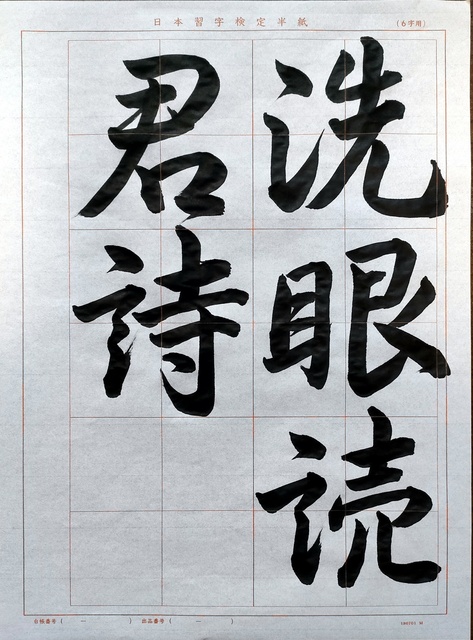 日本習字検定半紙
(6字用)
洗眼読
君詩
台帳番号(　－　)　出品番号(　－　)